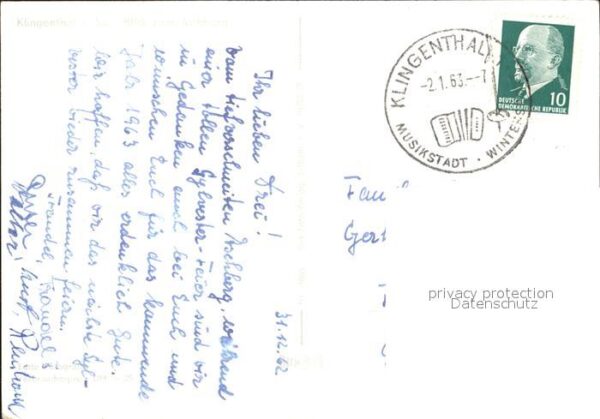 Klingenthal
Ihr lieben Drei!
Vom tiefverschneiten Aschberg, während
einer tollen Sylvester-Feier sind wir
in Gedenken auch bei Euch und
wünschen Euch für das kommende
Jahr 1963 alles erdenklich Gute.
Wir hoffen, daß wir das nächste Syl-
vester wieder zusammen feiern.
31.12.62
KLINGENTHAL
-2.1.63.--7
MUSIKSTADT · WINTERS
DEUTSCHE
DEMOKRATISCHE REPUBLIK
10
Fam
Ger
privacy protection
Datenschutz